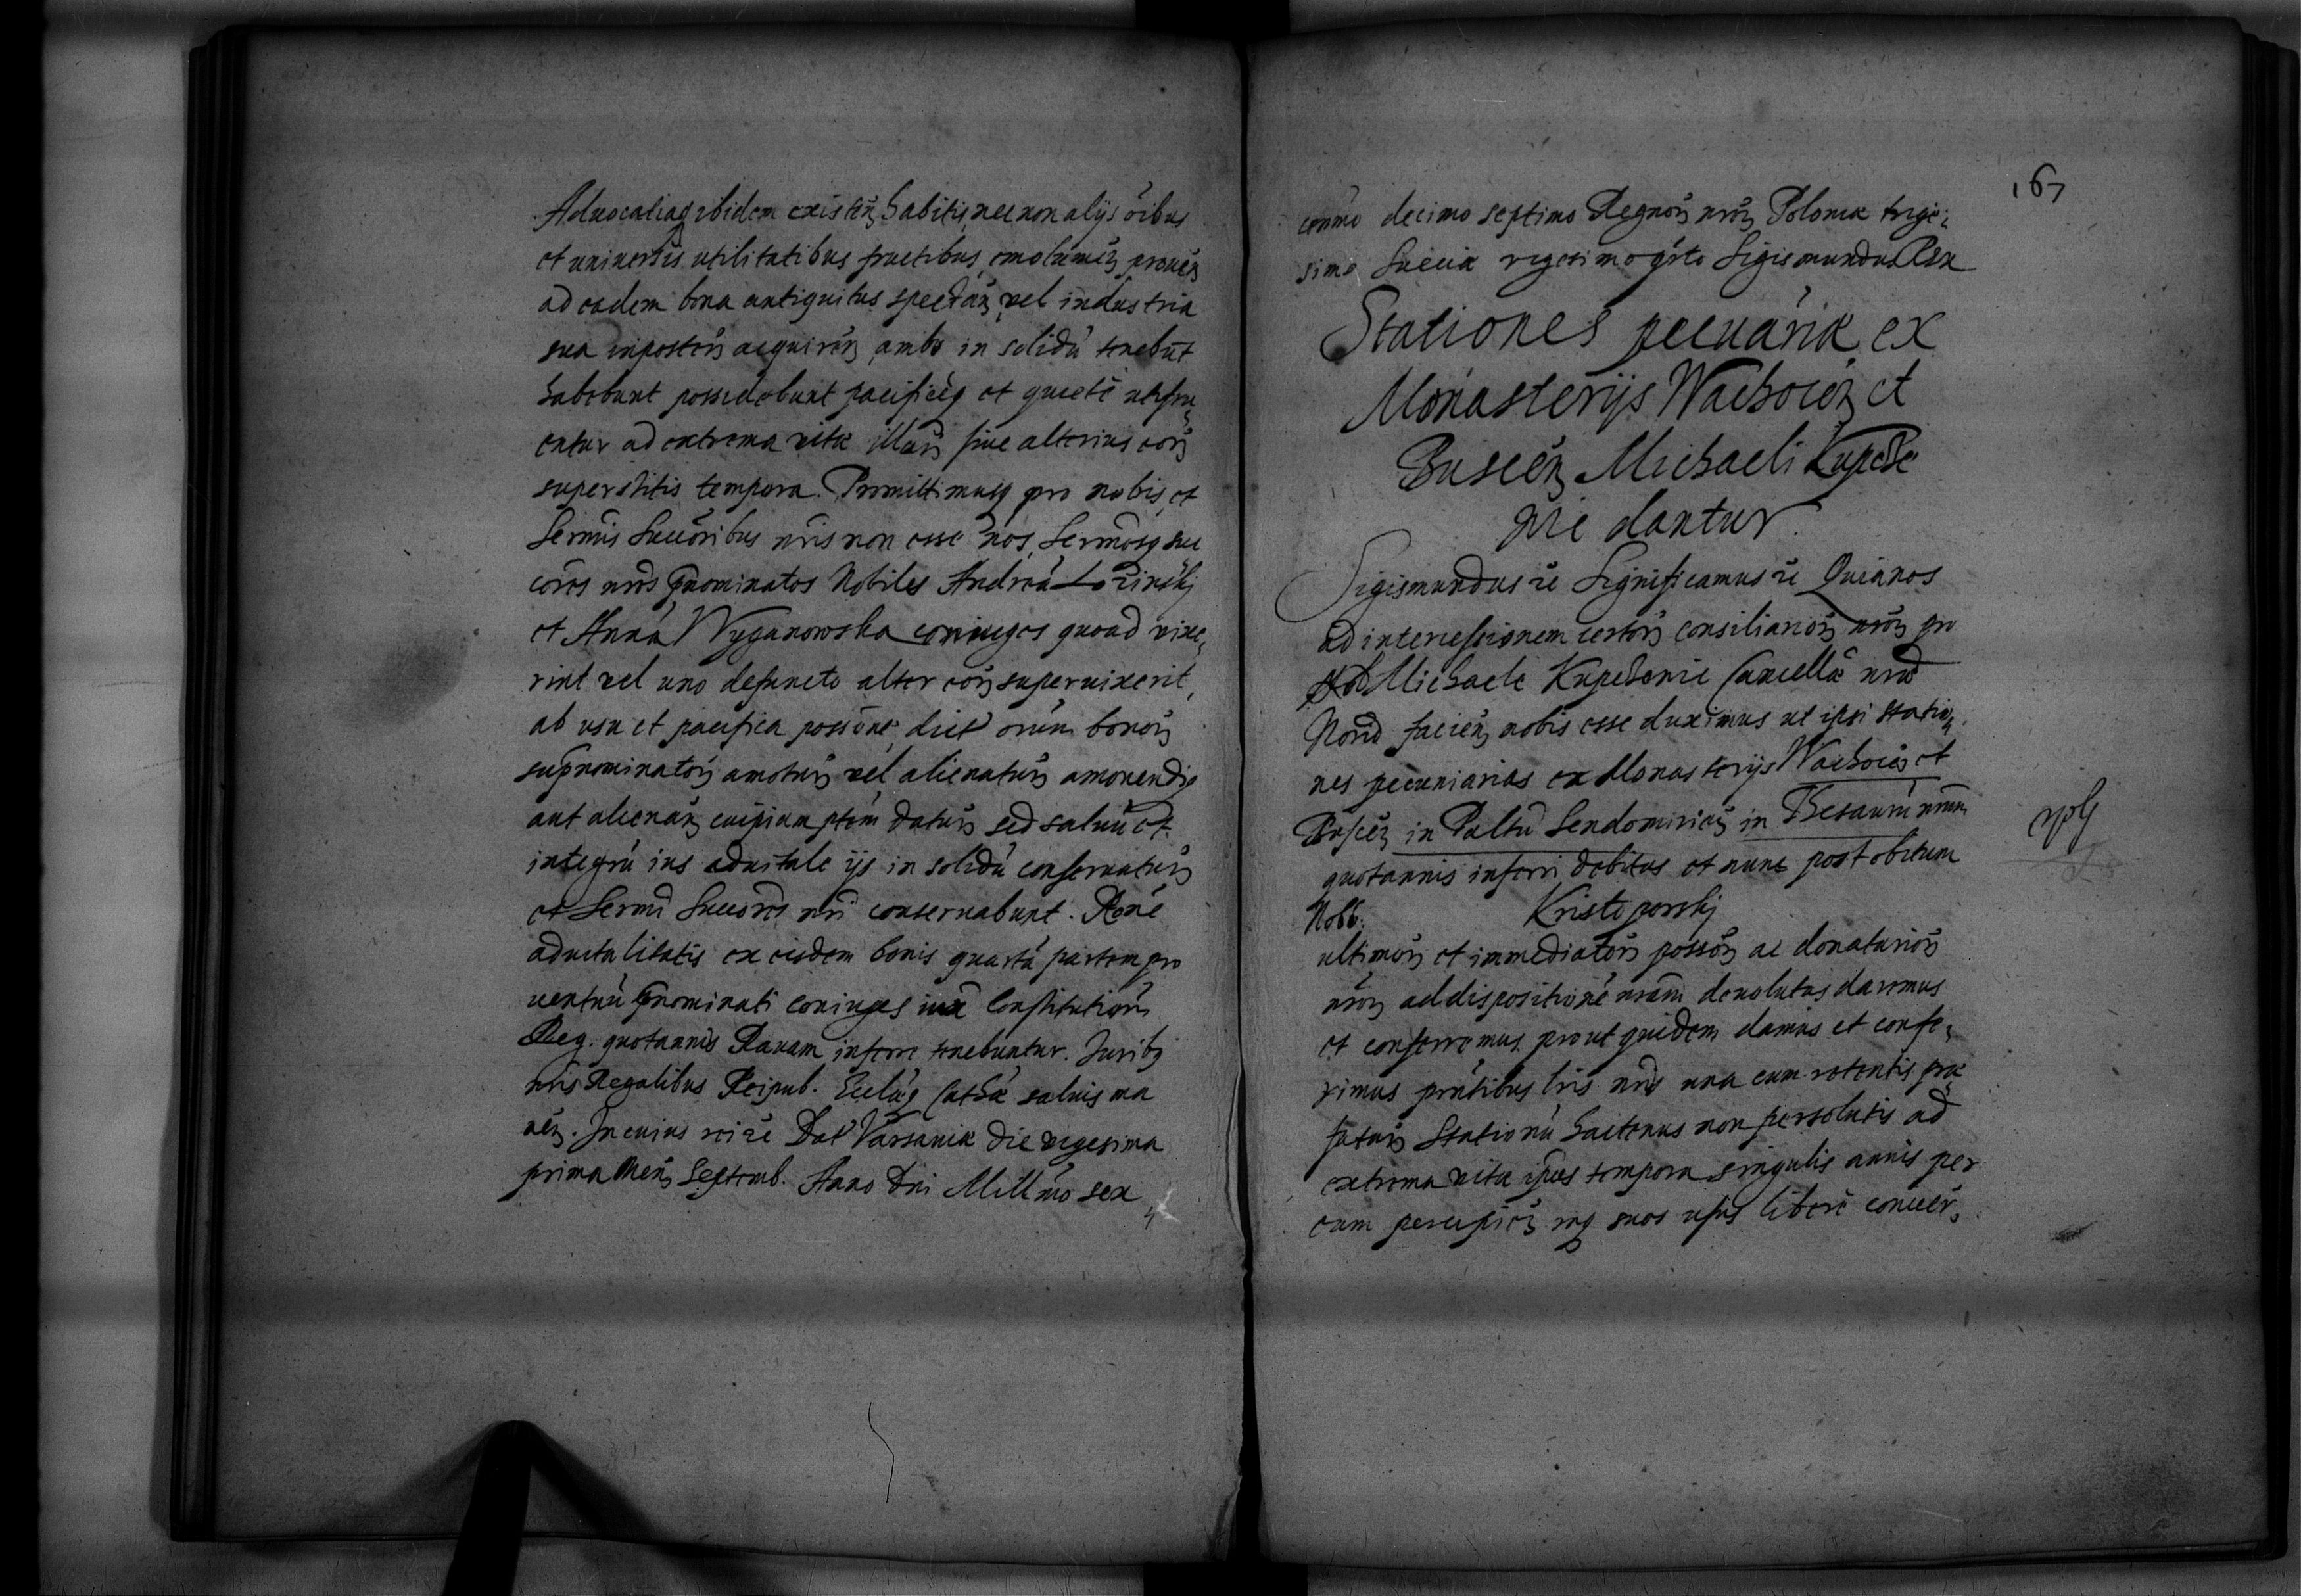 Aduocatiaq ibidem existen habitis, necnon alijs oibus
et uniuersis utilitatibus fructibus emolumen prouen
ad eadem bona antiquitus spectan, vel industria
sua inposterū acquiren, ambo in solidū tenebūt
habebunt possidebunt pacificeq et quietè utifru,
entur ad extrema vitæ illorū siue alterius eorū
superstitis tempora. Promittimusq pro nobis, et
Sermis Succoribus nris non esse nos, Sermosq suc
cores nros prænominatos Nobiles Andreā Lozinskj
et Annā Wyganowska coniuges quoad vixe,
rint vel uno defuncto alter eorū superuixerit,
ab usu et pacifica possōne, dict oīum bonorū
supnominatorū amoturū vel alienaturū amouendiq
aut alienan cuipiam ptem daturū sed saluū et
integrū ius aduitale ijs in solidū conseruaturū
et Sermi Succores nri conseruabunt. Rōne
aduitalitatis ex eisdem bonis quartā partem pro
uentuū prænominati coniuges iuxa Constitutionū
Reg. quotannis Rauam inferre tenebuntur. Juribq
nris Regalibus Reipub. Eccliæq Cathcæ saluis ma
nen. In cuius rei ēc Dat Varsauiæ die vigesima
prima Mens Septemb. Anno Dni Millmo sex
167
cenmo decimo septimo Regnorū nrorū Poloniæ trige,
simo Sueciæ vigesimoqrto Sigismundus Rex
Stationes pecuariæ ex
Monasterijs Wachocien et
Buscen Michaeli Kupedo
nie dantur.
Sigismundus ēc Significamus ēc Quia nos
ad intercessionem certorū consiliariorū nrorū pro
Nob Michaele Kupedonie Cancellā nræ
Nord facien nobis esse duximus ut ipsi statio,
nes pecuniarias ex Monasterijs Wachocien et
Buscen in Paltū Sendomirien in Thesaurū nrum
quotannis inferri debitas et nunc post obitum
Nobb. Kristoporskj
ultimorū et immediatorū possorū ac donatariorū
nrorū ad dispositionē nram deuolutas daremus
et conferremus prout quidem damus et confe,
rimus prntibus lris nris una cum retentis præ
fatarū Stationū hactenus non persolutis ad
extrema vitæ ipsius tempora singulis annis per
eum percipien inq suos usus liberè conuer,